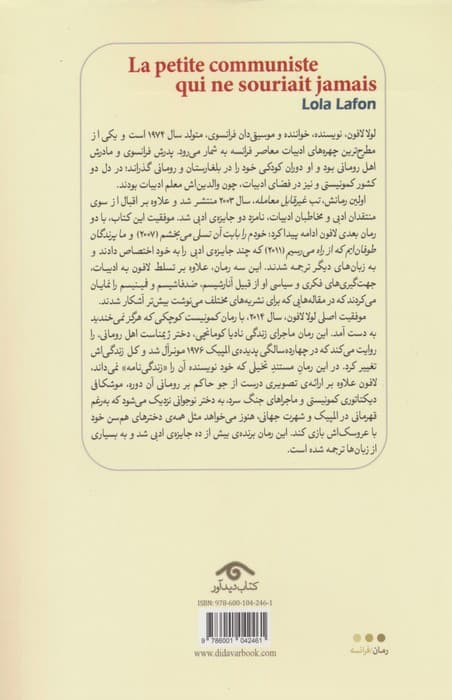 La petite communiste
qui ne souriait jamais
Lola Lafon
لولا لافون، نویسنده، خواننده و موسیقی‌دان فرانسوی، متولد سال ۱۹۷۴ است و یکی از
مطرح‌ترین چهره‌های ادبیات معاصر فرانسه به شمار می‌رود. پدرش فرانسوی و مادرش
اهل رومانی بود و او دوران کودکی خود را در بلغارستان و رومانی گذراند؛ در دل دو
کشور کمونیستی و نیز در فضای ادبیات، چون والدین‌اش معلم ادبیات بودند.
اولین رمانش، تب غیرقابل معامله، سال ۲۰۰۳ منتشر شد و علاوه بر اقبال از سوی
منتقدان ادبی و مخاطبان ادبیات، نامزد دو جایزه‌ی ادبی شد. موفقیت این کتاب، با دو
رمان بعدی لافون ادامه پیدا کرد؛ خودم را بابت آن تسلی می‌بخشم (۲۰۰۷) و ما پرندگان
طوفان‌ایم که از راه می‌رسیم (۲۰۱۱) که چند جایزه‌ی ادبی را به خود اختصاص دادند و
به زبان‌های دیگر ترجمه شدند. این سه رمان، علاوه بر تسلط لافون به ادبیات،
جهت‌گیری‌های فکری و سیاسی او از قبیل آنارشیسم، ضدفاشیسم و فمینیسم را نمایان
می‌کردند که در مقاله‌هایی که برای نشریه‌های مختلف می‌نوشت بیش‌تر آشکار شدند.
موفقیت اصلی لولا لافون، سال ۲۰۱۴، با رمان کمونیست کوچکی که هرگز نمی‌خندید
به دست آمد. این رمان ماجرای زندگی نادیا کومانچی، دختر ژیمناست اهل رومانی، را
روایت می‌کند که در چهارده‌سالگی پدیده‌ی المپیک ۱۹۷۶ مونرآل شد و کل زندگی‌اش
تغییر کرد. در این رمانِ مستندِ تخیلی که خود نویسنده آن را «زندگی‌نامه» نمی‌داند،
لافون علاوه بر ارائه‌ی تصویری درست از جو حاکم بر رومانی آن دوره، موشکافی
دیکتاتوری کمونیستی و ماجراهای جنگ سرد، به دختر نوجوانی نزدیک می‌شود که به‌رغم
قهرمانی در المپیک و شهرت جهانی، هنوز می‌خواهد مثل همه‌ی دخترهای هم‌سن خود
با عروسک‌اش بازی کند. این رمان برنده‌ی بیش از ده جایزه‌ی ادبی شد و به بسیاری
از زبان‌ها ترجمه شده است.
کتاب دیدآور
ISBN: 978-600-104-246-1
9 786001 042461
www.didavarbook.com
رمان/فرانسه